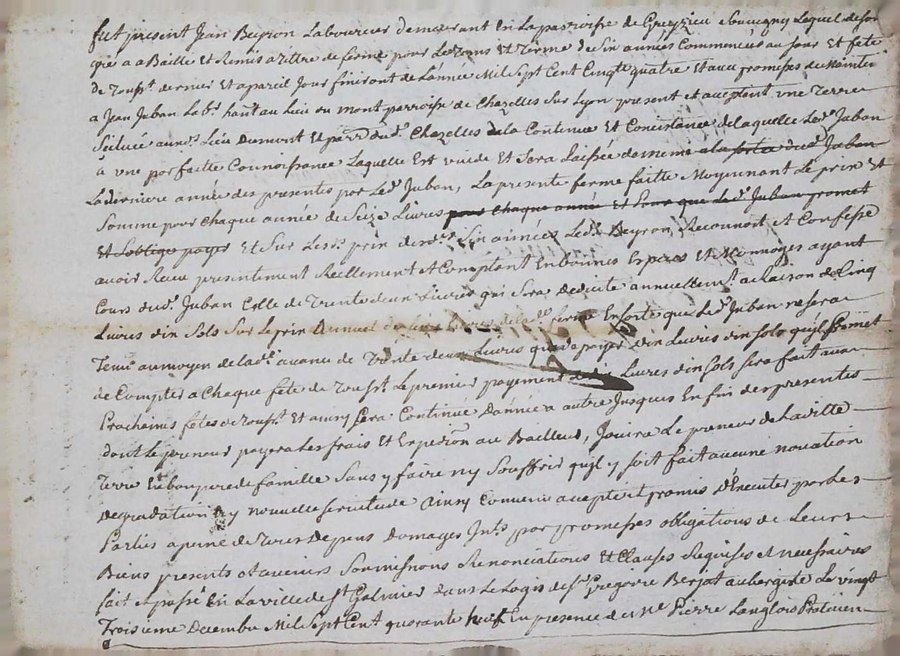 fut present Jean Beyron Laboureur demeurant En La parroisse de Grezieu Souvigny Lequel de son
gré a a Baille et Remis a titre de ferme pour Le tems Et terme de Six années Commencés au jour Et fete
de touss.t dernier Et a pareil Jour finiront de L'année Mil Sept Cent Cinqte quatre Et avec promesse de Mainten.
a Jean Juban Lab.r hant au Lieu du mont parroisse de Chazelles Sur Lyon present et acceptant une terre
Scituée aud. Lieu Dumont Et par.sse dud. Chazelles de la Contenue Et Concistance de laquelle Led. Juban
a une parfaitte Connoissance Laquelle Est vuide Et Sera Laissée de meme a la sortie dud. Juban
La derniere année des presentes par Led. Juban, La presente ferme faitte Moyennant Le prix Et
Somme pour Chaque année de Seize Livres pour Chaque année Et Prix que led. Juban promet
Et Soblige payer Et Sur Lesd. prix desd. Six années Led. Beyron Reconnoit Et Confesse
avoir Recu presentement Reellement Et Comptant En bonnes Especes Et Monnoyes ayant
Cours dud. Juban Celle de trente deux Livres qui Sera deduite annuellem.t a Raison de Cinq
Livres dix Sols Sur Le prix Annuel de la d. ferme En sorte que Led. Juban ne sera
Tenu au moyen de lad. avance de trente deux Livres qu'a payer dix Livres dix Sols qu'il promet
de Compter a Chaque fête de touss.t Le premier payement de dix Livres dix Sols Sera fait aux
Prochaines fêtes de touss.t Et ainsy Sera Continué d'année a autre Jusques En fin des presentes
dont Le preneur payera Les frais Et Expedi.on au Bailleur, Jouira Le preneur de La ditte
Terre En bon pere de famille Sans y faire ny Souffrir qu'il y soit fait aucune novation
degradation ny nouvelle Servitude Ainsy Convenu accepté et promis d'Executer par Les
Parties a peine de tous Depens Domages Int.s par promesses obligations de Leurs
Biens presents et avenirs Soumissions Renonciations Et Clauses Requises et necessaires
fait Et passé En La ville de S.t Galmier dans Le Logis de S.r Gregoire Berjat aubergiste Le vingt
Troisieme Decembre Mil Sept Cent quarante neuf En presence de M.e Pierre Langlois Praticien